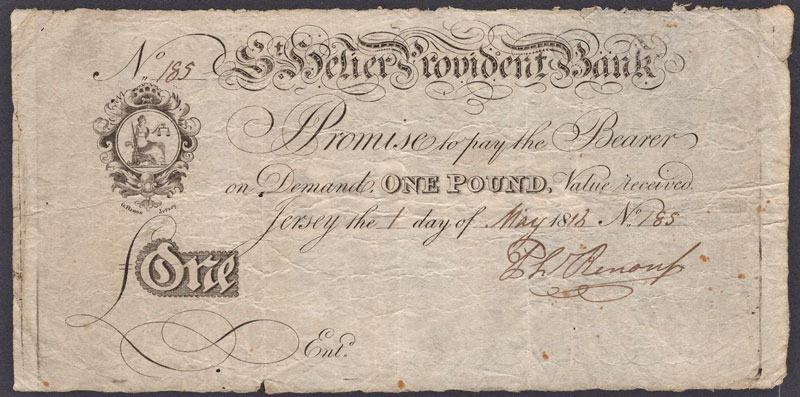 St Helier Provident Bank
No. 185
I Promise to pay the Bearer
on Demand, ONE POUND, Value received.
Jersey the 1 day of May 1818 No. 185
Jersey
Phs Renouf
£ One
Entd.